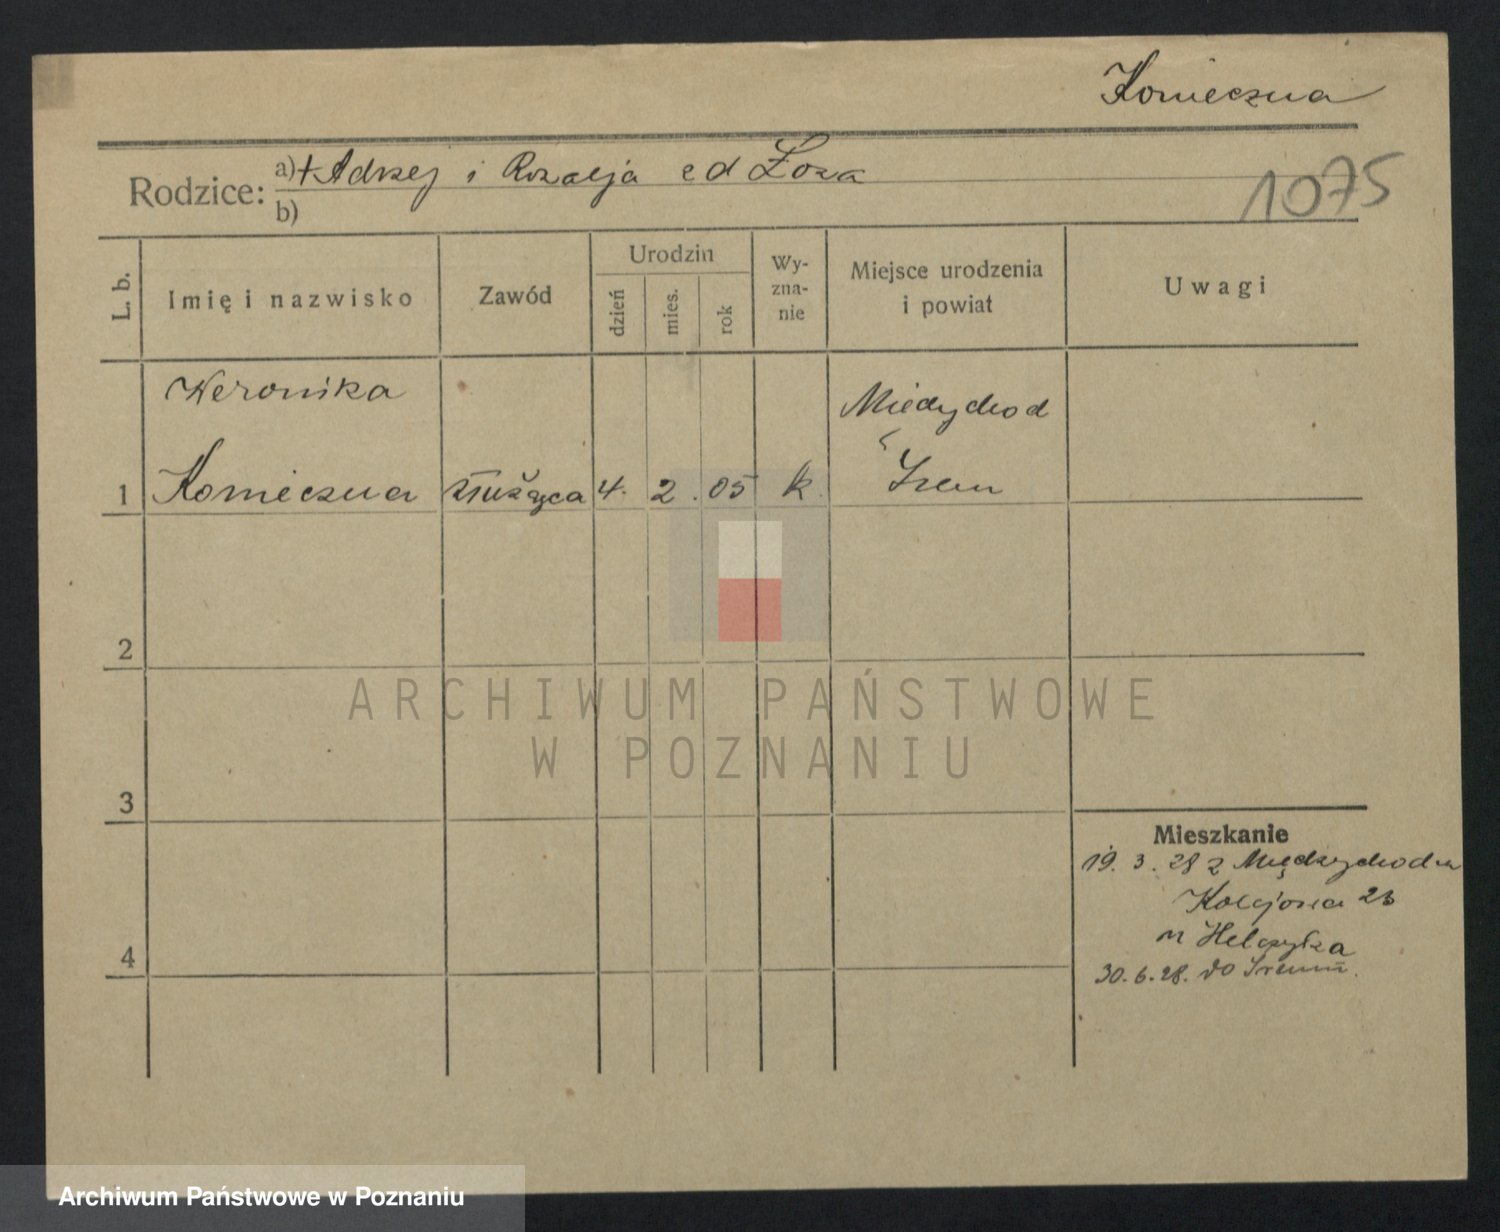 Konieczna
Rodzice: a) + Adrzej i Rozalja zd Łoza
b)
1075
L. b.
Imię i nazwisko
Zawód
Urodzin
dzień
mies.
rok
Wy-
zna-
nie
Miejsce urodzenia
i powiat
Uwagi
Weronika
Międychod
1 Konieczna służąca 4. 2. 05 k. Śrem
2
3
4
Mieszkanie
19. 3. 28 z Międzychodu
23
30. 6. 28. do Śremu.
ARCHIWUM PAŃSTWOWE
W POZNANIU
Archiwum Państwowe w Poznaniu